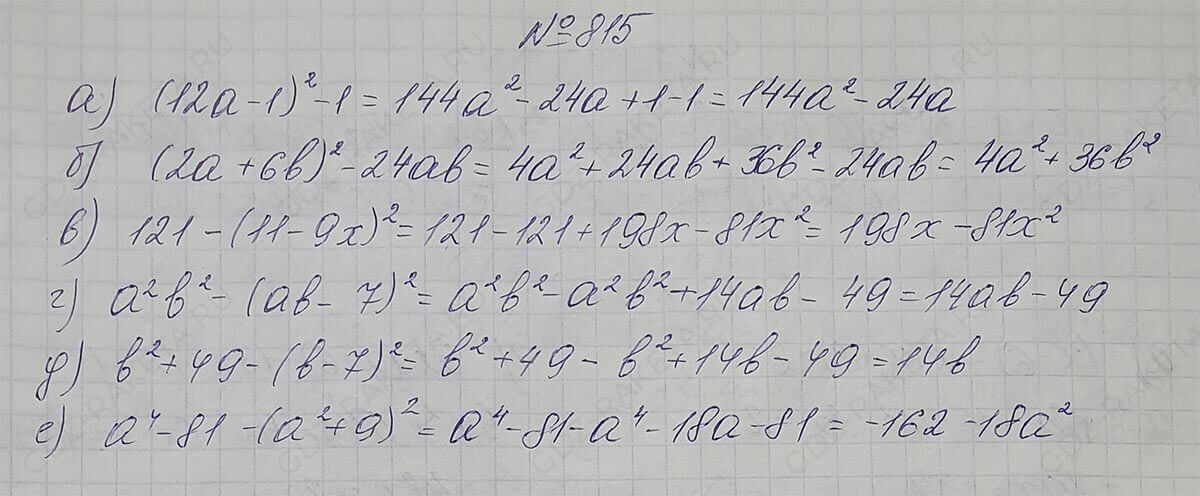 № 815
а) (12a-1)²-1=144a²-24a+1-1=144a²-24a
б) (2a+6b)²-24ab=4a²+24ab+36b²-24ab=4a²+36b²
в) 121-(11-9x)²=121-121+198x-81x²=198x-81x²
г) a²b²-(ab-7)²=a²b²-a²b²+14ab-49=14ab-49
д) b²+49-(b-7)²=b²+49-b²+14b-49=14b
е) a⁴-81-(a²+9)²=a⁴-81-a⁴-18a-81=-162-18a²